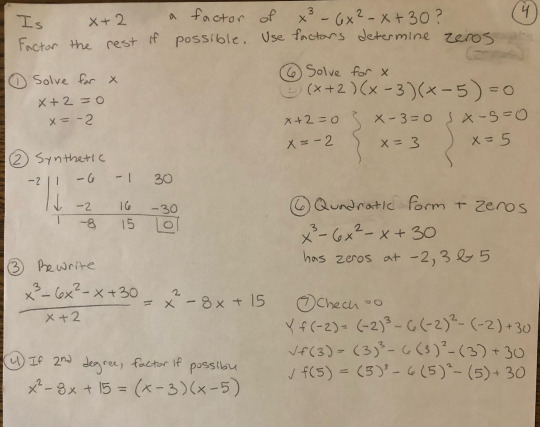 Is x+2 a factor of x³ - 6x² - x + 30?
④
Factor the rest if possible. Use factors determine zeros
① Solve for x
x + 2 = 0
x = -2
② Synthetic
-2 | 1 -6 -1 30
↓ -2 16 -30
1 -8 15 0
③ Rewrite
x³ - 6x² - x + 30 / x + 2 = x² - 8x + 15
④ If 2nd degree, factor if possible
x² - 8x + 15 = (x-3)(x-5)
⑥ Solve for x
(x+2)(x-3)(x-5) = 0
x+2=0 x-3=0 x-5=0
x=-2 x=3 x=5
⑥ Quadratic form + zeros
x³ - 6x² - x + 30
has zeros at -2, 3 & 5
⑦ Check =0
√ f(-2) = (-2)³ - 6(-2)² - (-2) + 30
√ f(3) = (3)³ - 6(3)² - (3) + 30
√ f(5) = (5)³ - 6(5)² - (5) + 30